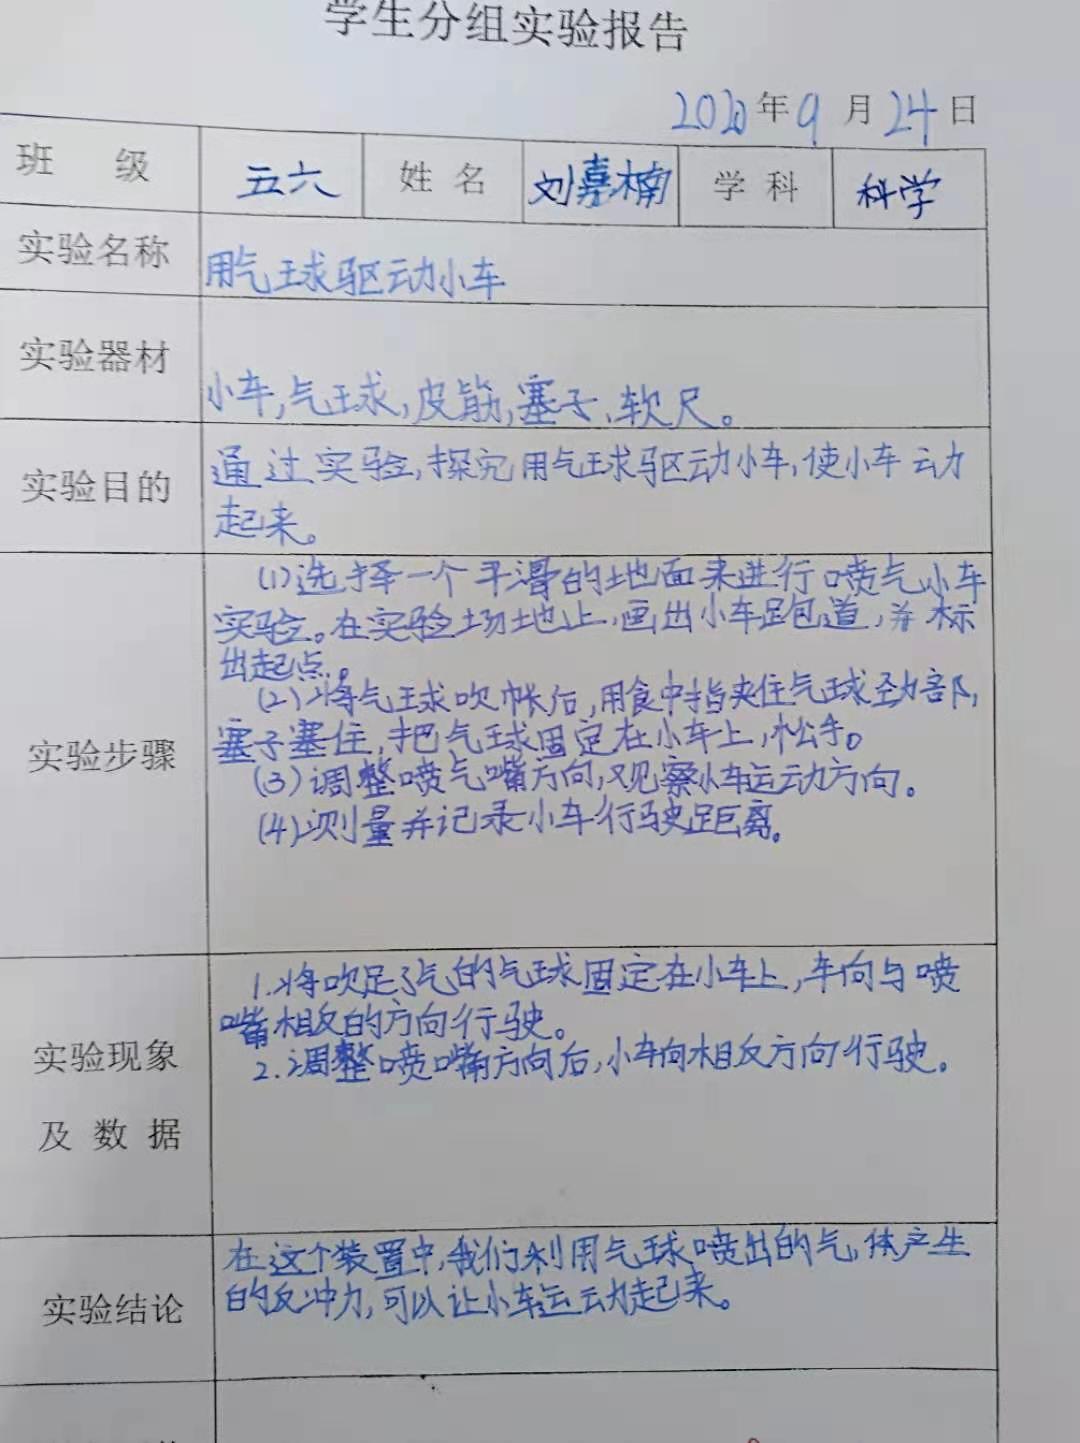 学生分组实验报告
2020年9月24日
班 级 五六 姓 名 刘嘉楠 学 科 科学
实验名称 用气球驱动小车
实验器材 小车,气球,皮筋,塞子、软尺。
实验目的 通过实验,探究用气球驱动小车,使小车动
起来。
(1)选择一个平滑的地面来进行喷气小车
实验。在实验场地上,画出小车跑道,并标
出起点。
(2)将气球吹帐后,用食中指夹住气球劲部,
实验步骤 塞子塞住,把气球固定在小车上,松手。
(3)调整喷气嘴方向,观察小车运动方向。
(4)测量并记录小车行驶距离。
1.将吹足了气的气球固定在小车上,车向与喷
嘴相反的方向行驶。
实验现象 2.调整喷嘴方向后,小车向相反方向行驶。
及 数 据
在这个装置中,我们利用气球喷出的气体产生
实验结论 的反冲力,可以让小车运动起来。